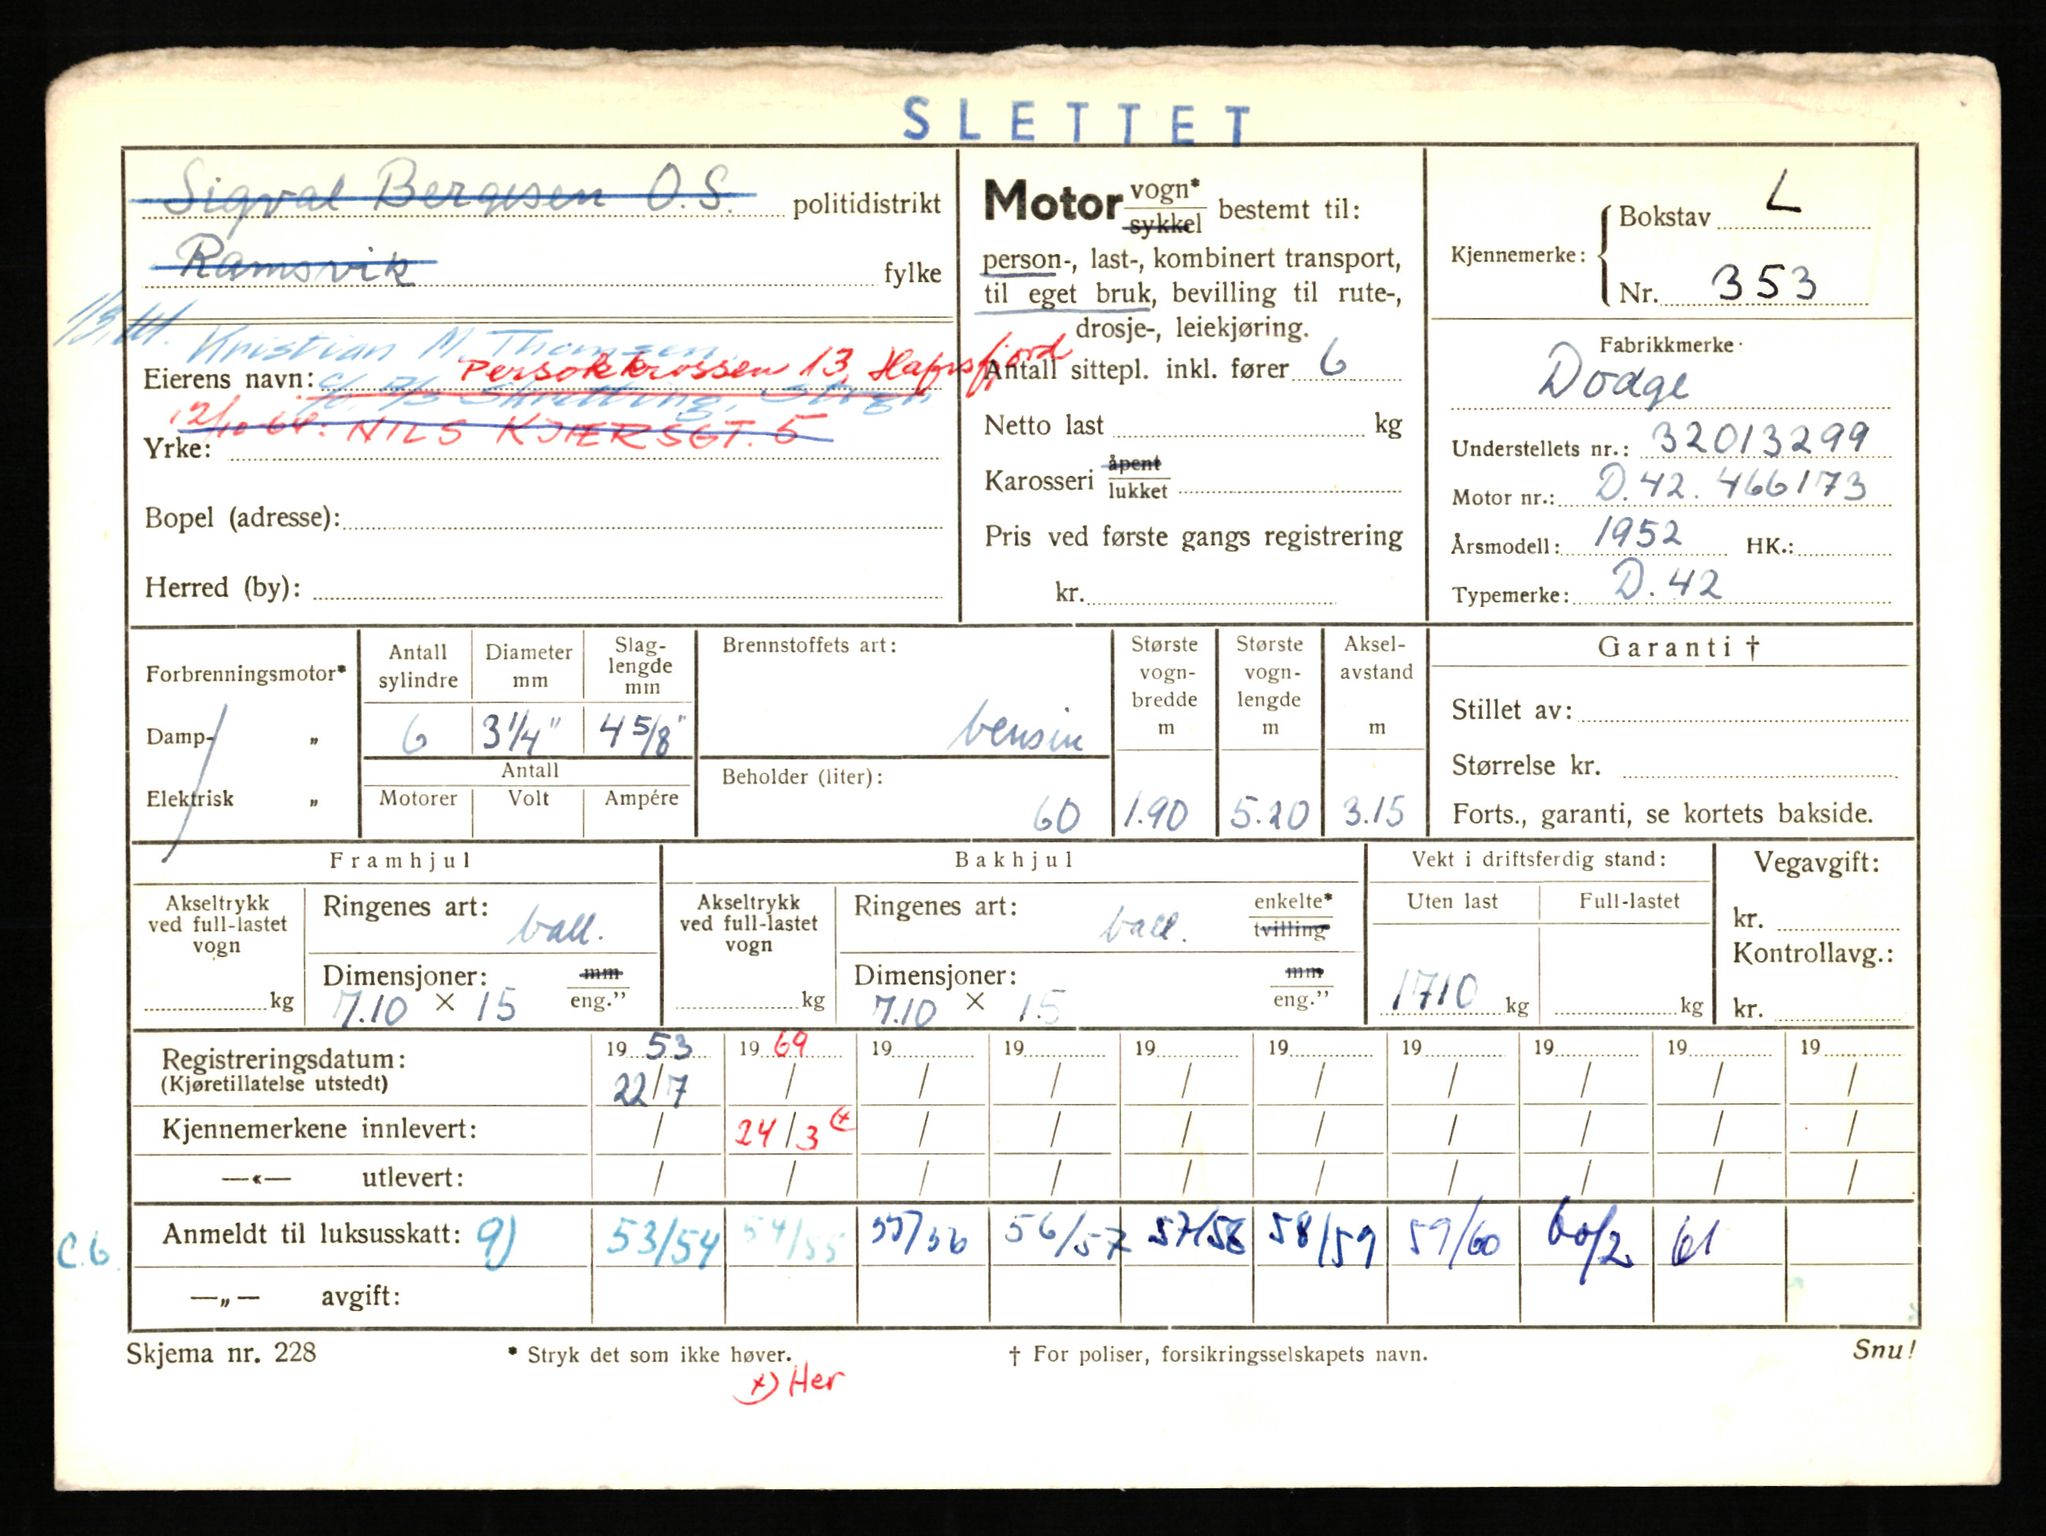 SLETTET
Sigval Bergesen O.S. politidistrikt
Ramsvik fylke
Kristian M Thomsen.
Eierens navn: Persokkrossen 13, Hafrsfjord
12/10-64: NILS KJÆRSGT. 5
Yrke:
Bopel (adresse):
Herred (by):
Motor vogn* sykkel bestemt til:
person-, last-, kombinert transport,
til eget bruk, bevilling til rute-,
drosje-, leiekjøring.
Antall sittepl. inkl. fører 6
Netto last kg
Karosseri åpent lukket
Pris ved første gangs registrering
kr.
Kjennemerke: Bokstav L
Nr. 353
Fabrikkmerke
Dodge
Understellets nr.: 32013299
Motor nr.: D.42. 466173
Årsmodell: 1952 HK.:
Typemerke: D.42
Forbrenningsmotor*
Damp- „
Elektrisk „
Antall sylindre 6
Diameter mm 3 1/4"
Slag-lengde mm 4 5/8"
Antall
Motorer Volt Ampére
Brennstoffets art: bensin
Beholder (liter): 60
Største vogn-bredde m 1.90
Største vogn-lengde m 5.20
Aksel-avstand m 3.15
Garanti †
Stillet av:
Størrelse kr.
Forts., garanti, se kortets bakside.
Framhjul
Akseltrykk ved full-lastet vogn kg
Ringenes art: ball.
Dimensjoner: mm eng."
7.10 × 15
Bakhjul
Akseltrykk ved full-lastet vogn kg
Ringenes art: ball. enkelte* tvilling
Dimensjoner: mm eng."
7.10 × 15
Vekt i driftsferdig stand:
Uten last Full-lastet
1710 kg kg
Vegavgift:
kr.
Kontrollavg.:
kr.
Registreringsdatum: 19 53 19 69 19 19 19 19 19 19 19 19
(Kjøretillatelse utstedt) 22/7 / / / / / / / / /
Kjennemerkene innlevert: / 24/3 x) / / / / / / / /
—«— utlevert: / / / / / / / / / /
C.6. Anmeldt til luksusskatt: 9) 53/54 54/55 55/56 56/57 57/58 58/59 59/60 60/2. 61
—„— avgift:
Skjema nr. 228 * Stryk det som ikke høver. † For poliser, forsikringsselskapets navn. Snu!
x) Her